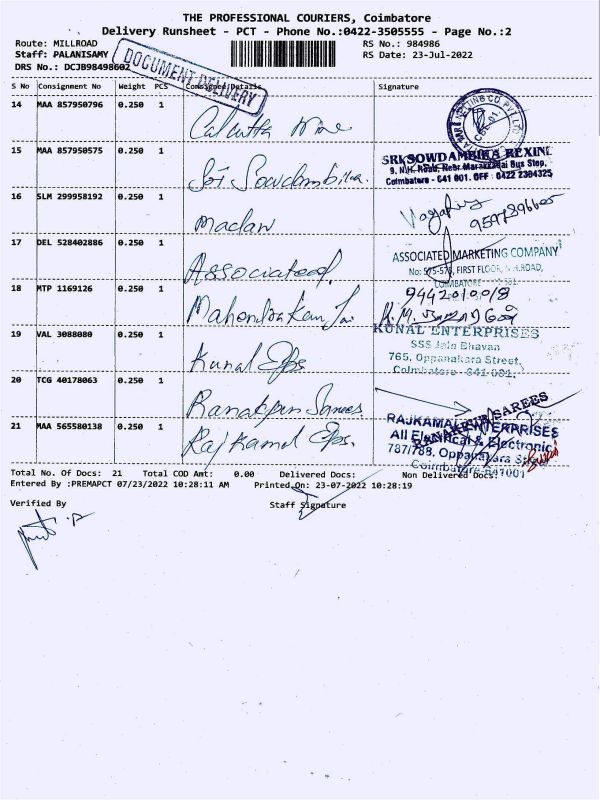 THE PROFESSIONAL COURIERS, Coimbatore
Delivery Runsheet - PCT - Phone No.:0422-3505555 - Page No.:2
Route: MILLROAD
RS No.: 984986
Staff: PALANISAMY
RS Date: 23-Jul-2022
DRS No.: DCJB98498602
DOCUMENT DELIVERY
S No Consignment No Weight PCS Consignee/Details Signature
14 MAA 857950796 0.250 1 Calcutta
15 MAA 857950575 0.250 1 Sri Sowdambika.
SRI SOWDAMBIKA REXINE
9, N.H. Road, Near Marakkadai Bus Stop,
Coimbatore - 641 001. OFF : 0422 2304325
16 SLM 299958192 0.250 1 Madan
17 DEL 528402886 0.250 1 Associated
ASSOCIATED MARKETING COMPANY
No: 575-576, FIRST FLOOR, N.H.ROAD,
COIMBATORE
18 MTP 1169126 0.250 1 Mahendra Kumar
19 VAL 3088080 0.250 1 Kunal Eps
KUNAL ENTERPRISES
SSS Jain Bhavan
765, Oppanakara Street,
Coimbatore - 641 001.
20 TCG 40178063 0.250 1 Ranakpur Sarees
RANAKPUR SAREES
21 MAA 565580138 0.250 1 Rajkamal Eps.
RAJKAMAL ENTERPRISES
All Electrical & Electronic
787/788, Oppanakara
Coimbatore-641001
Total No. Of Docs: 21 Total COD Amt: 0.00 Delivered Docs: Non Delivered Docs:
Entered By :PREMAPCT 07/23/2022 10:28:11 AM Printed On: 23-07-2022 10:28:19
Verified By
Staff Signature